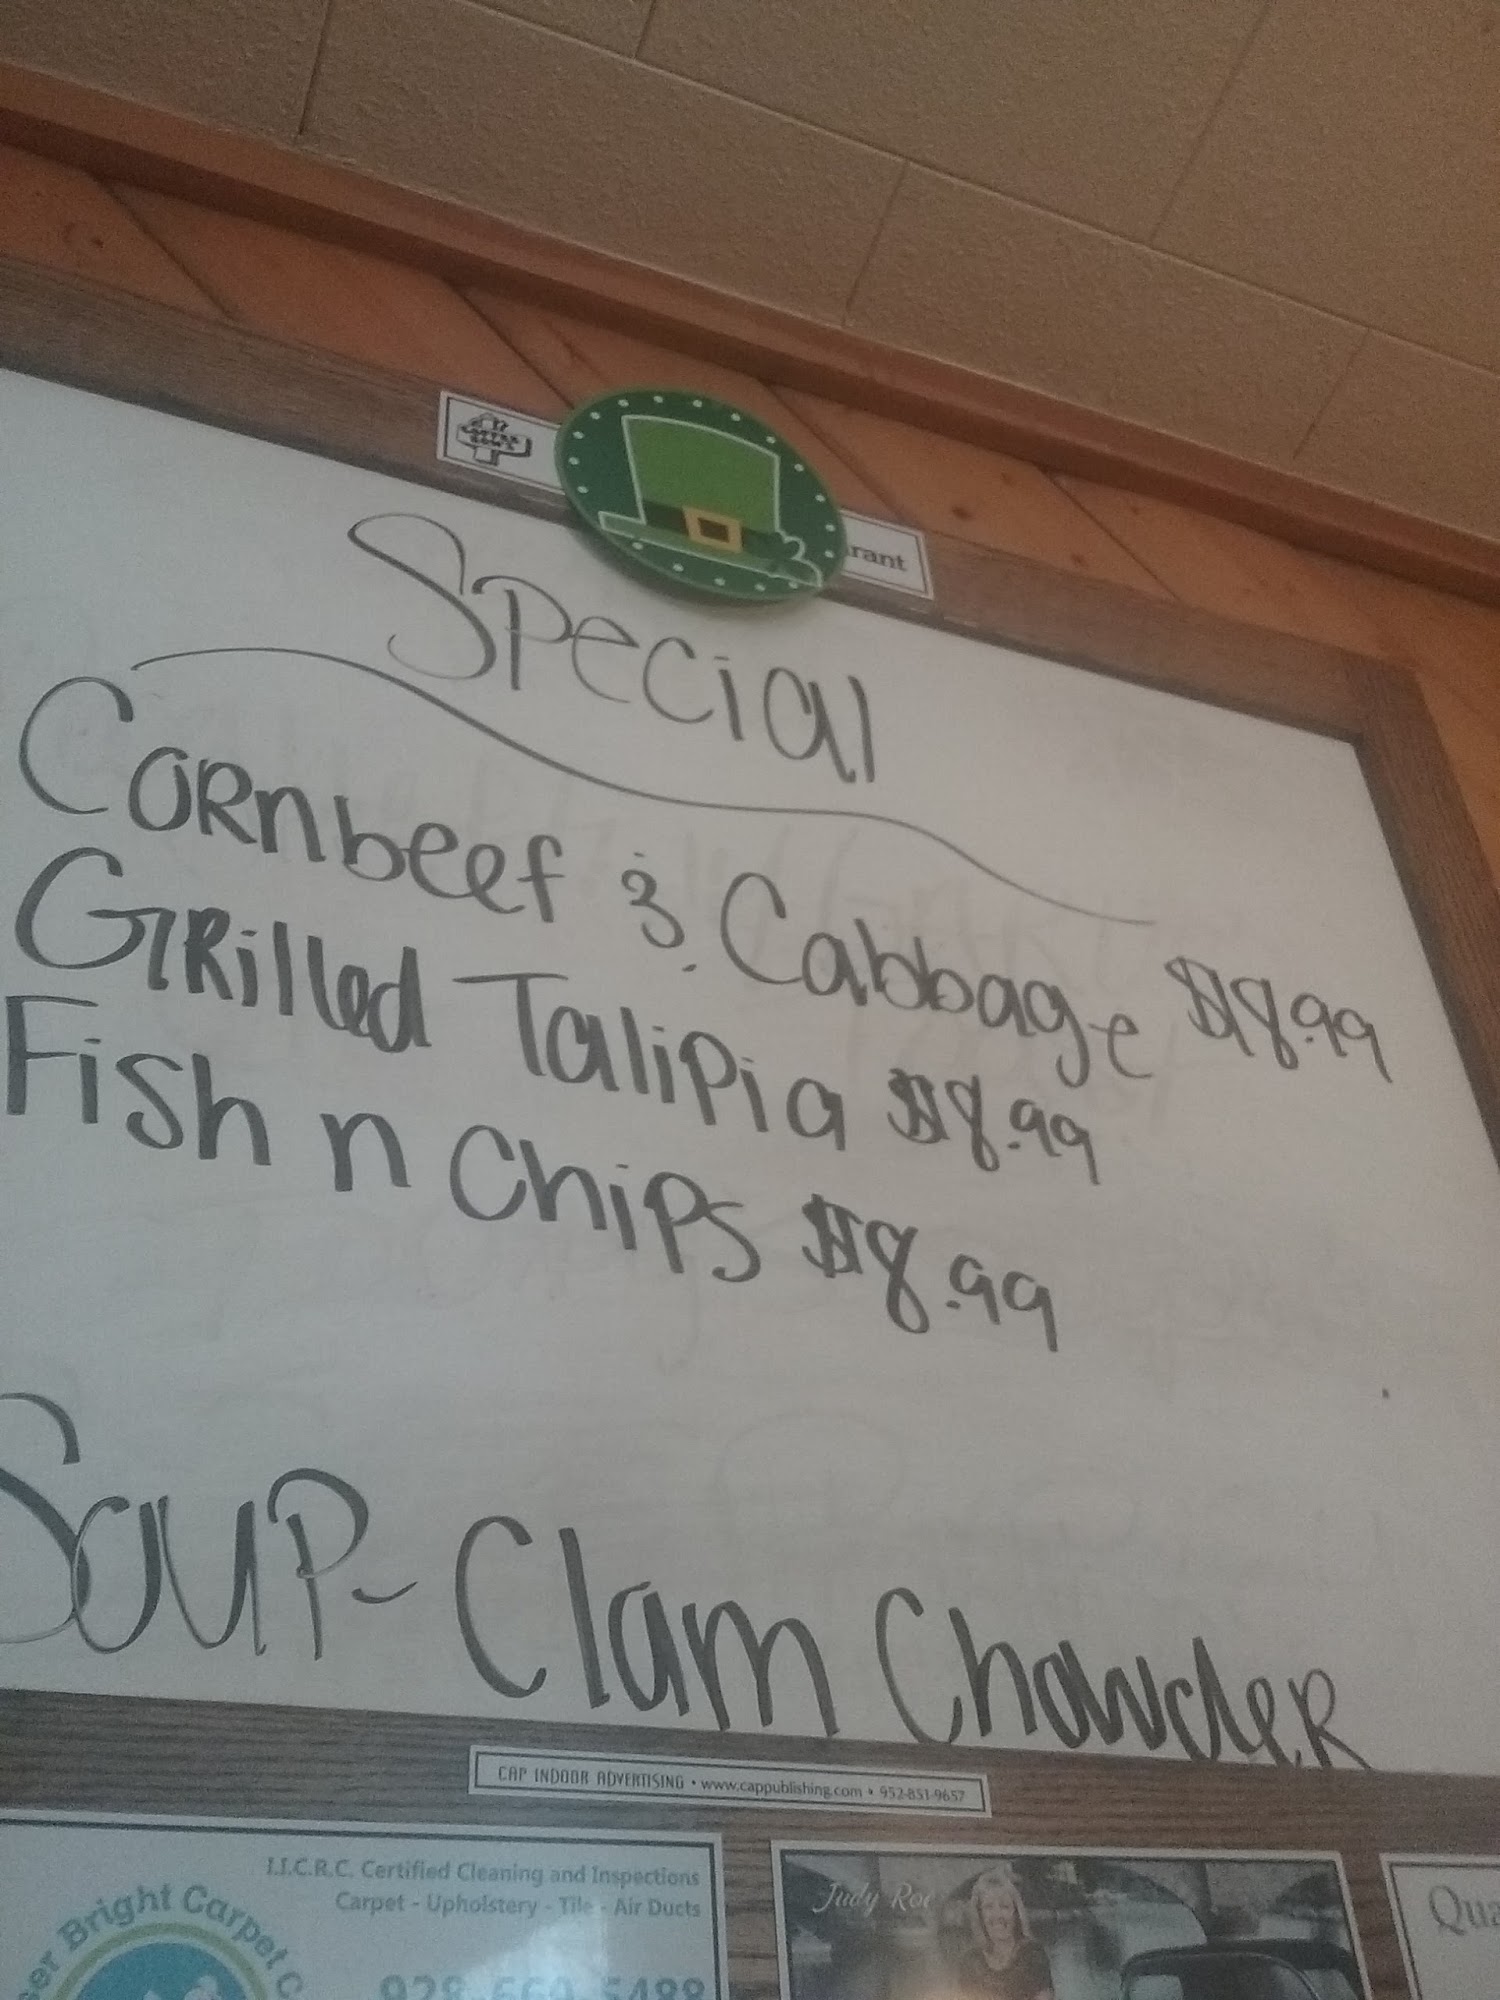 rant
Special
Cornbeef & Cabbage $8.99
Grilled Talipia $8.99
Fish n Chips $8.99
Soup- Clam Chowder
CAP INDOOR ADVERTISING • www.cappublishing.com • 952-851-9657
I.I.C.R.C. Certified Cleaning and Inspections
Carpet - Upholstery - Tile - Air Ducts
ser Bright Carpet C
928-669-5488
Judy Roe
Qua